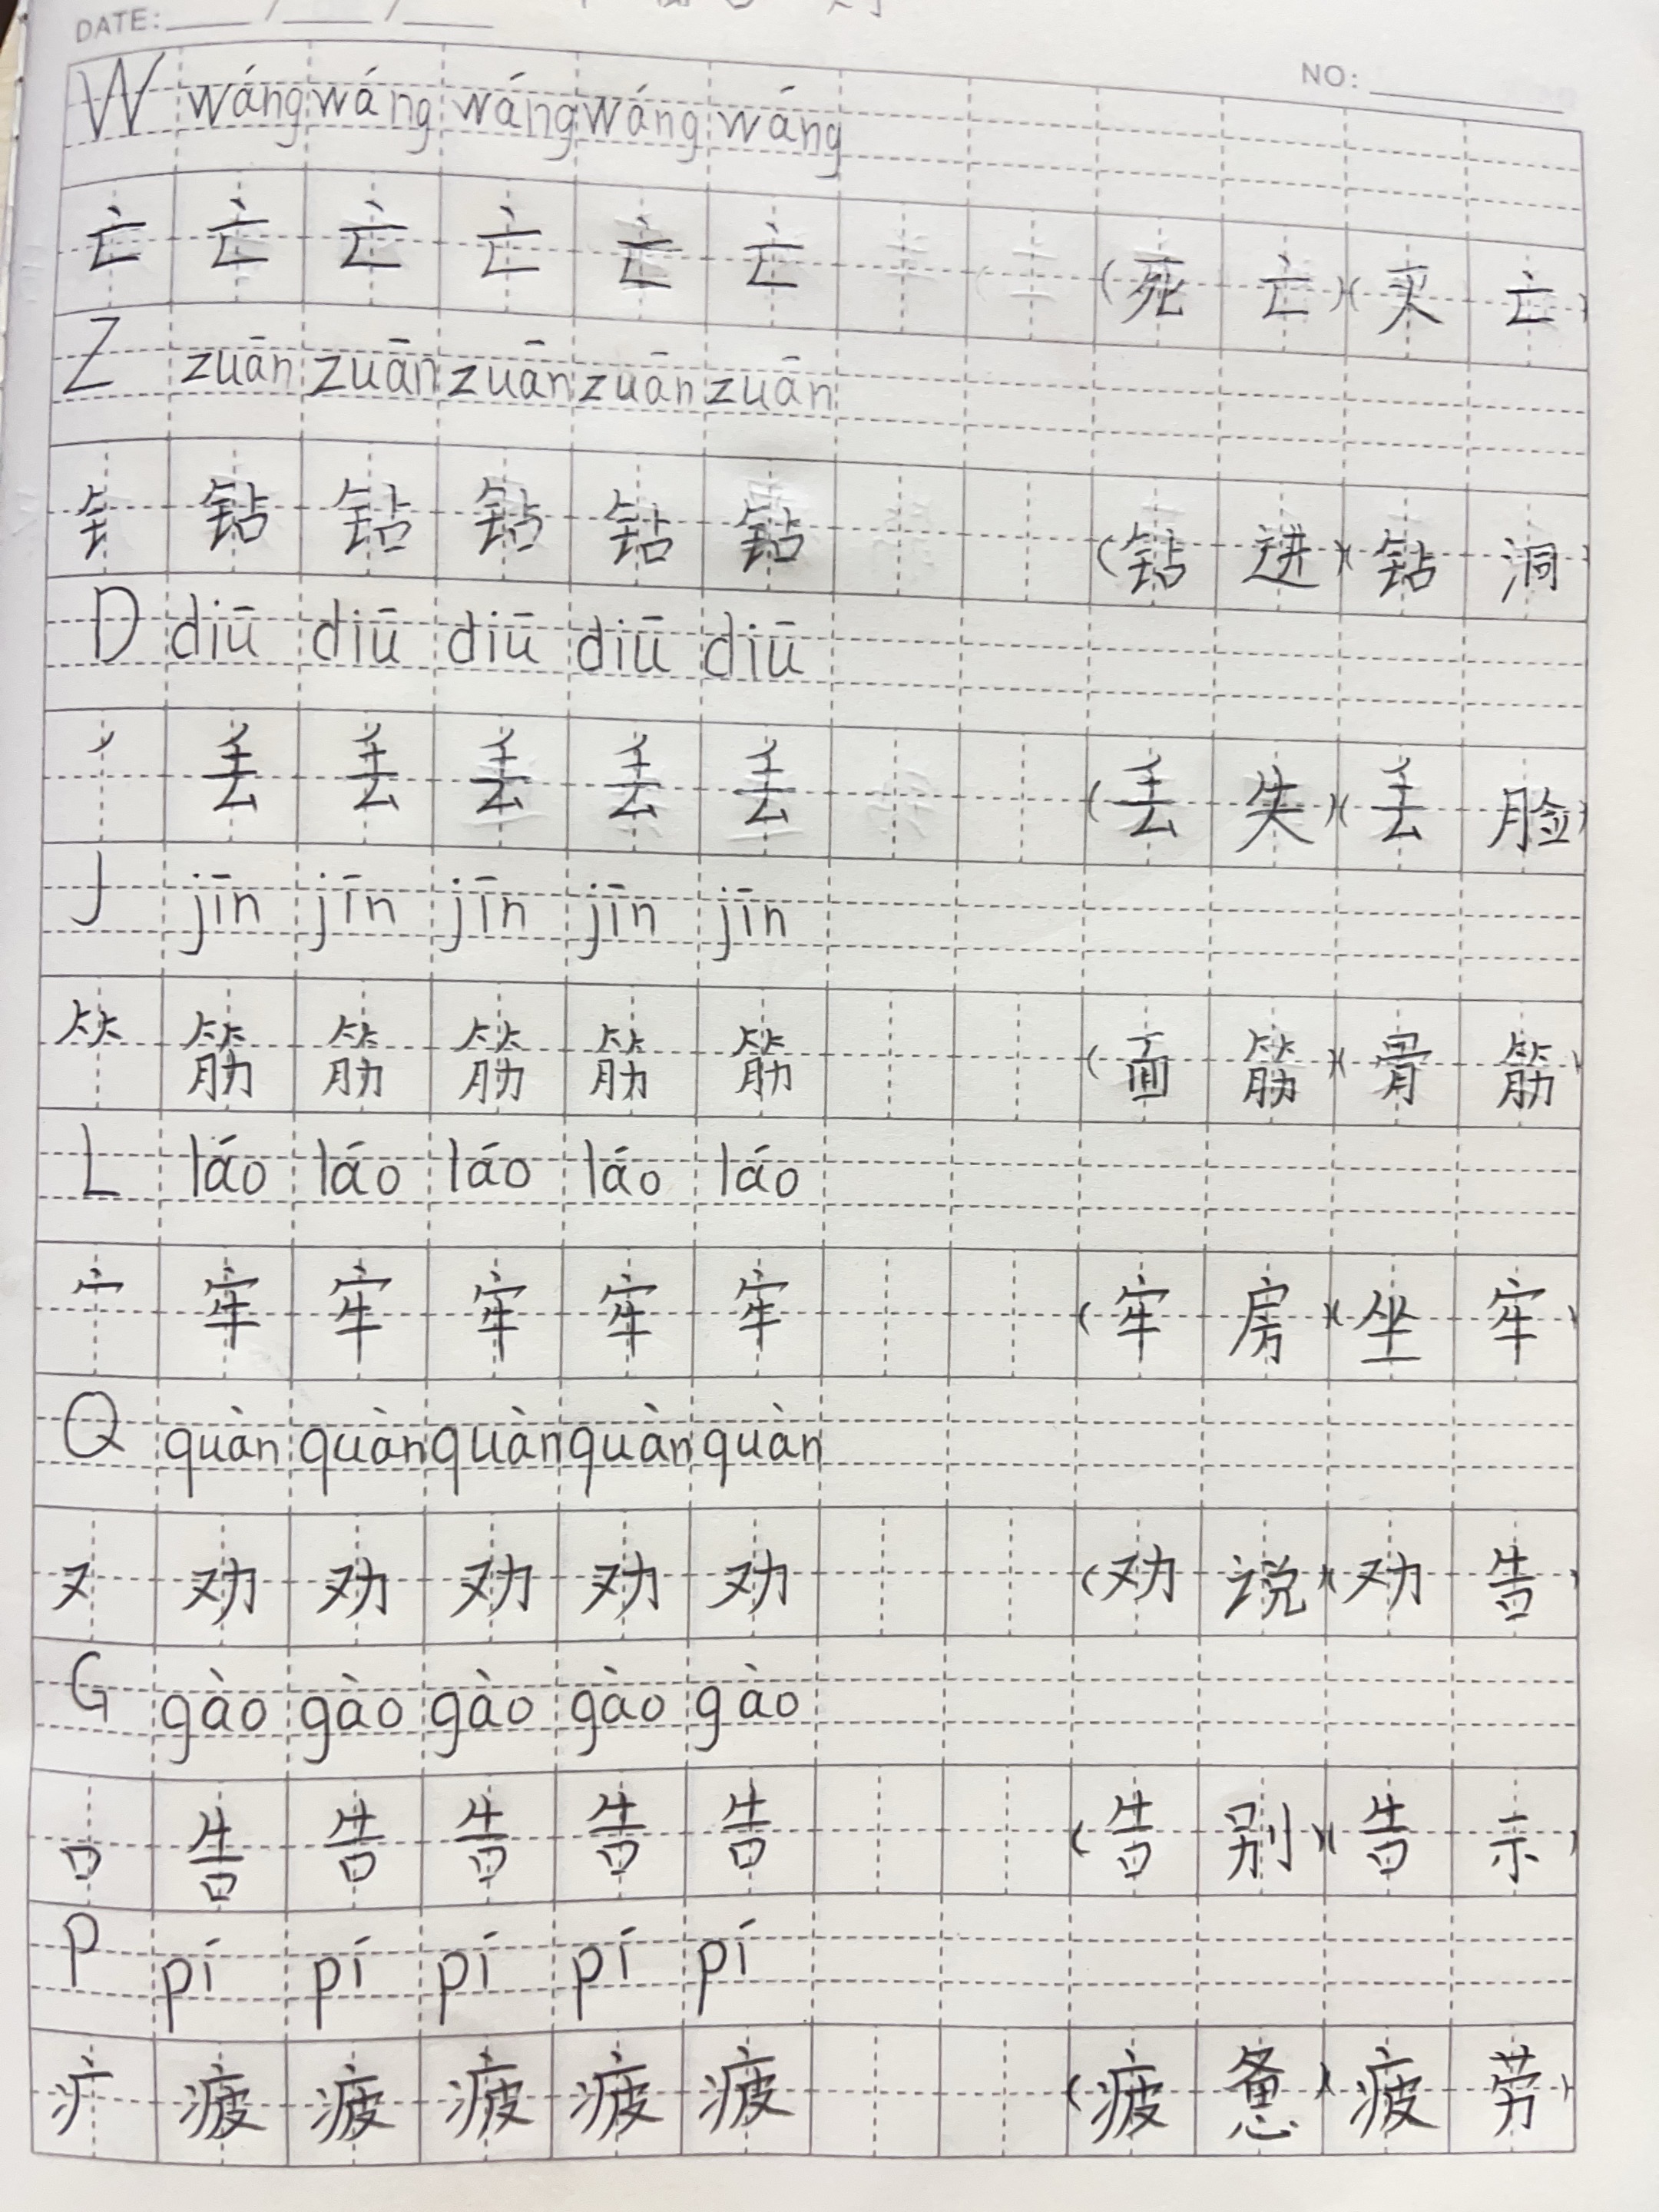 DATE: / /
NO:
W wáng wáng wáng wáng wáng
亡 亡 亡 亡 亡 亡 (死亡)(灭亡)
Z zuān zuān zuān zuān zuān
钅 钻 钻 钻 钻 钻 (钻进)(钻洞)
D diū diū diū diū diū
丿 丢 丢 丢 丢 丢 (丢失)(丢脸)
J jīn jīn jīn jīn jīn
⺮ 筋 筋 筋 筋 筋 (面筋)(骨筋)
L láo láo láo láo láo
宀 牢 牢 牢 牢 牢 (牢房)(坐牢)
Q quàn quàn quàn quàn quàn
又 劝 劝 劝 劝 劝 (劝说)(劝告)
G gào gào gào gào gào
口 告 告 告 告 告 (告别)(告示)
P pí pí pí pí pí
疒 疲 疲 疲 疲 疲 (疲惫)(疲劳)